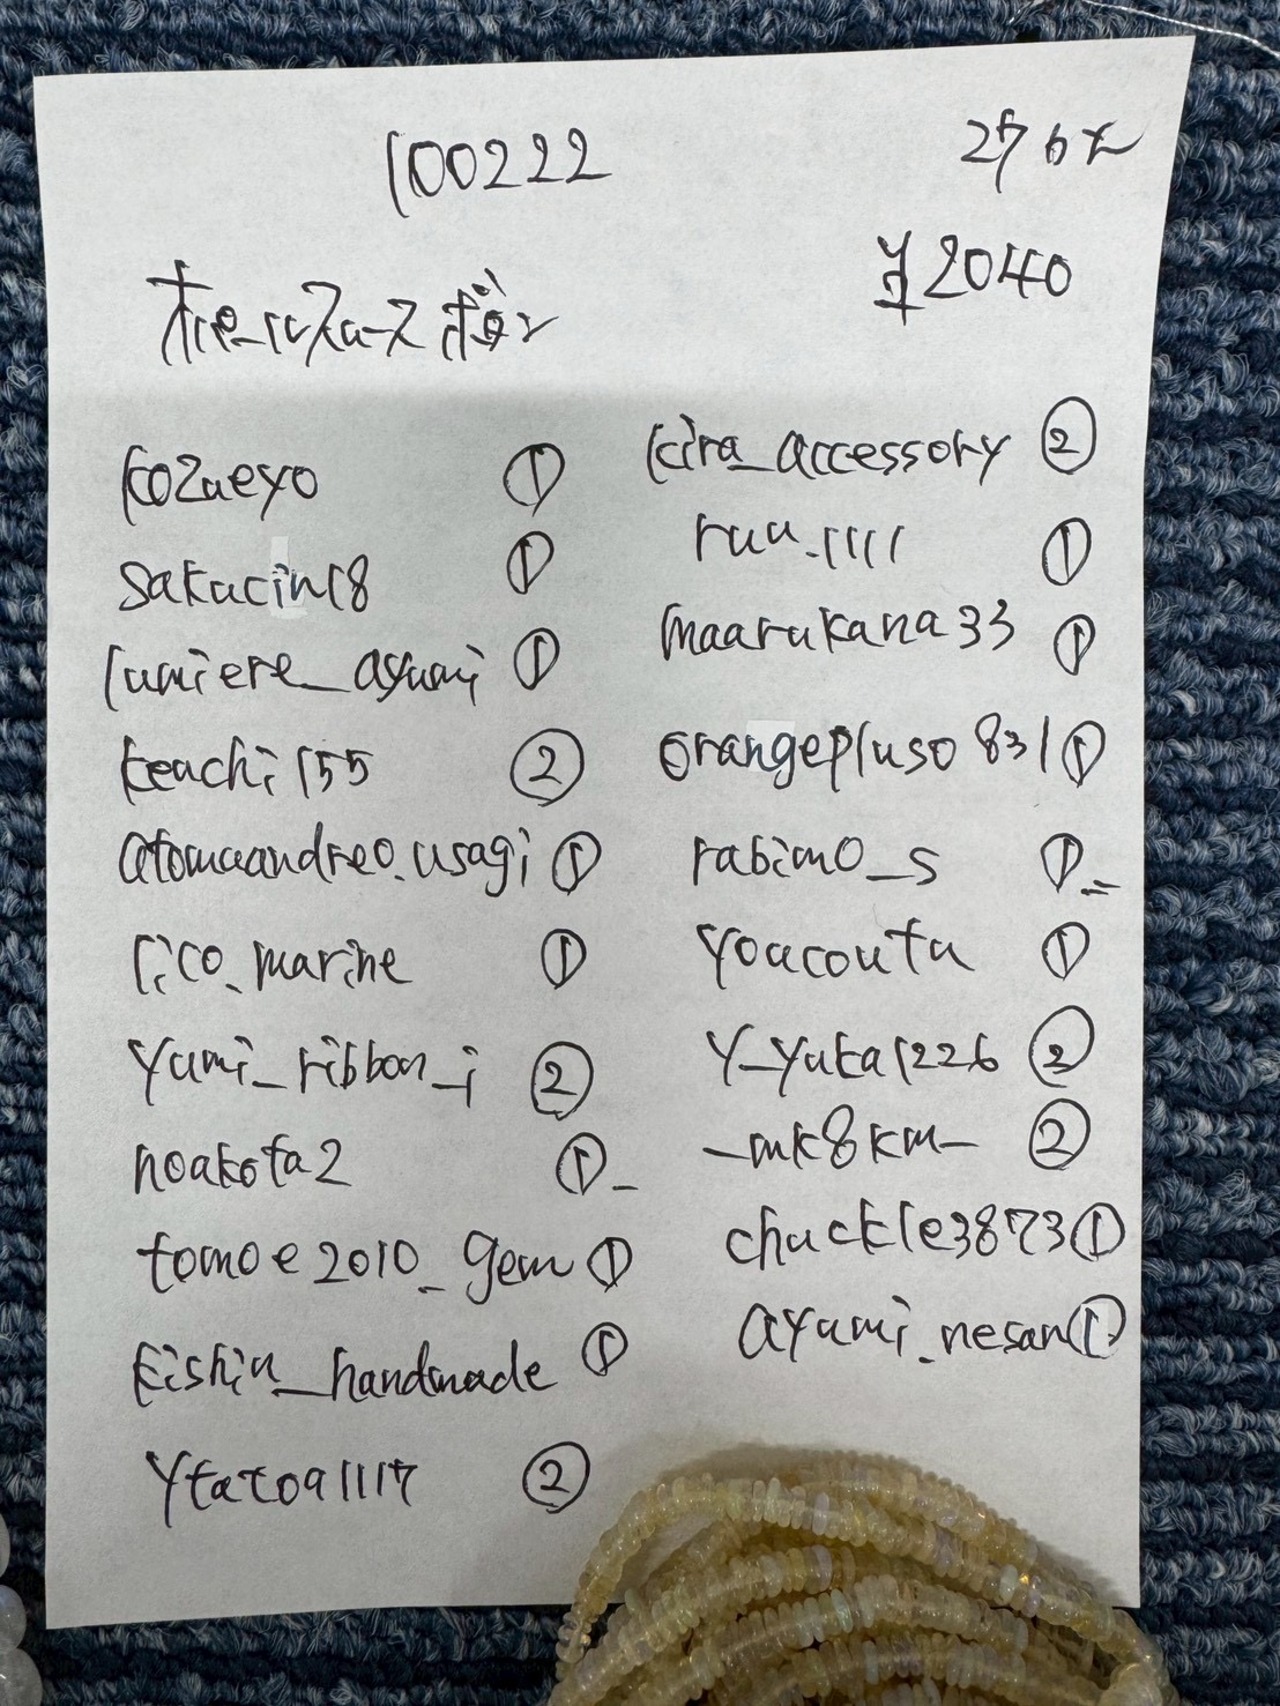 100222
276
¥2040
kozueyo ①
sakucin18 ①
lumiere_ayumi ①
keachi155 ②
atomuandreo.usagi ①
rico_marine ①
yumi_ribbon_i ②
noakota2 ①
tomoe2010_gem ①
kishin_handmade ①
ytatoa1117 ②
kira_accessory ②
ruu.1111 ①
maarukana33 ①
orangepluso831 ①
rabimo_s ①
youcouta ①
y_yuka1226 ②
_mk8km_ ②
chuckle3873 ①
ayumi.nesan ①